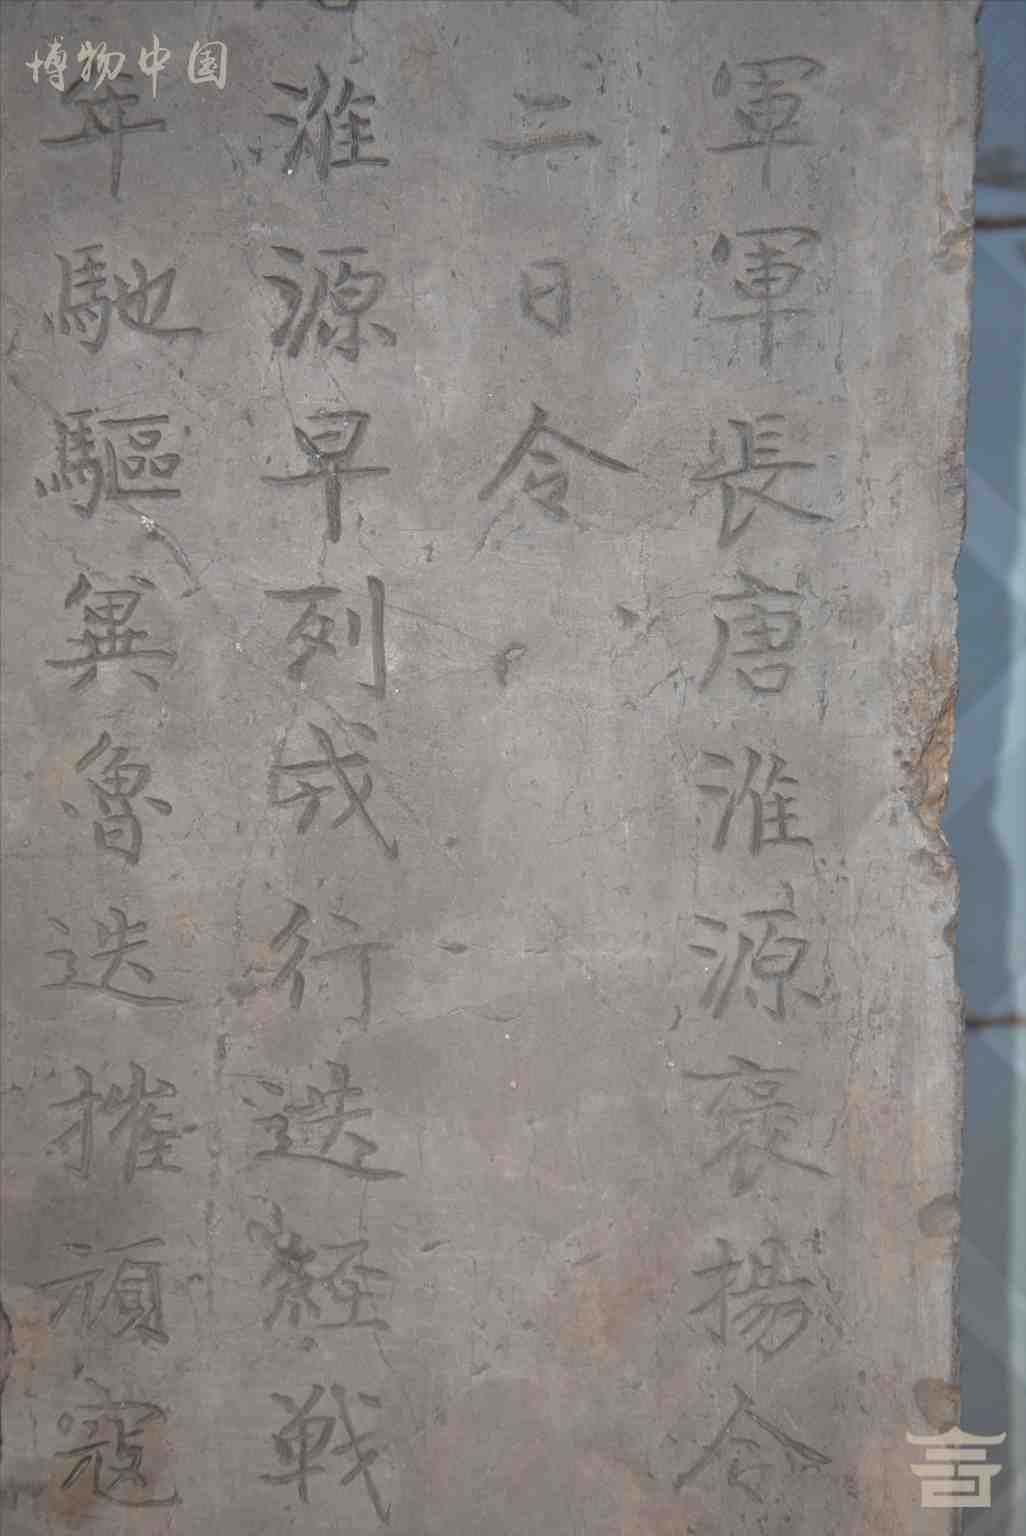 博物中国
軍軍長唐淮源褒揚令
二日令
淮源早列戎行迭經戰
年馳驅冀魯迭摧頑寇